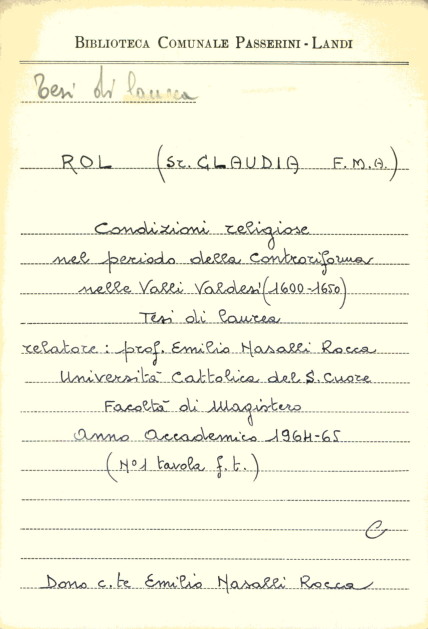 BIBLIOTECA COMUNALE PASSERINI-LANDI
Tesi di laurea
ROL (Sr. CLAUDIA F.M.A.)
Condizioni religiose
nel periodo della Controriforma
nelle Valli Valdesi (1600-1650)
Tesi di laurea
relatore: prof. Emilio Nasalli Rocca
Università Cattolica del S. Cuore
Facoltà di Magistero
Anno Accademico 1964-65
(N°1 tavola f.t.)
C
Dono c.te Emilio Nasalli Rocca